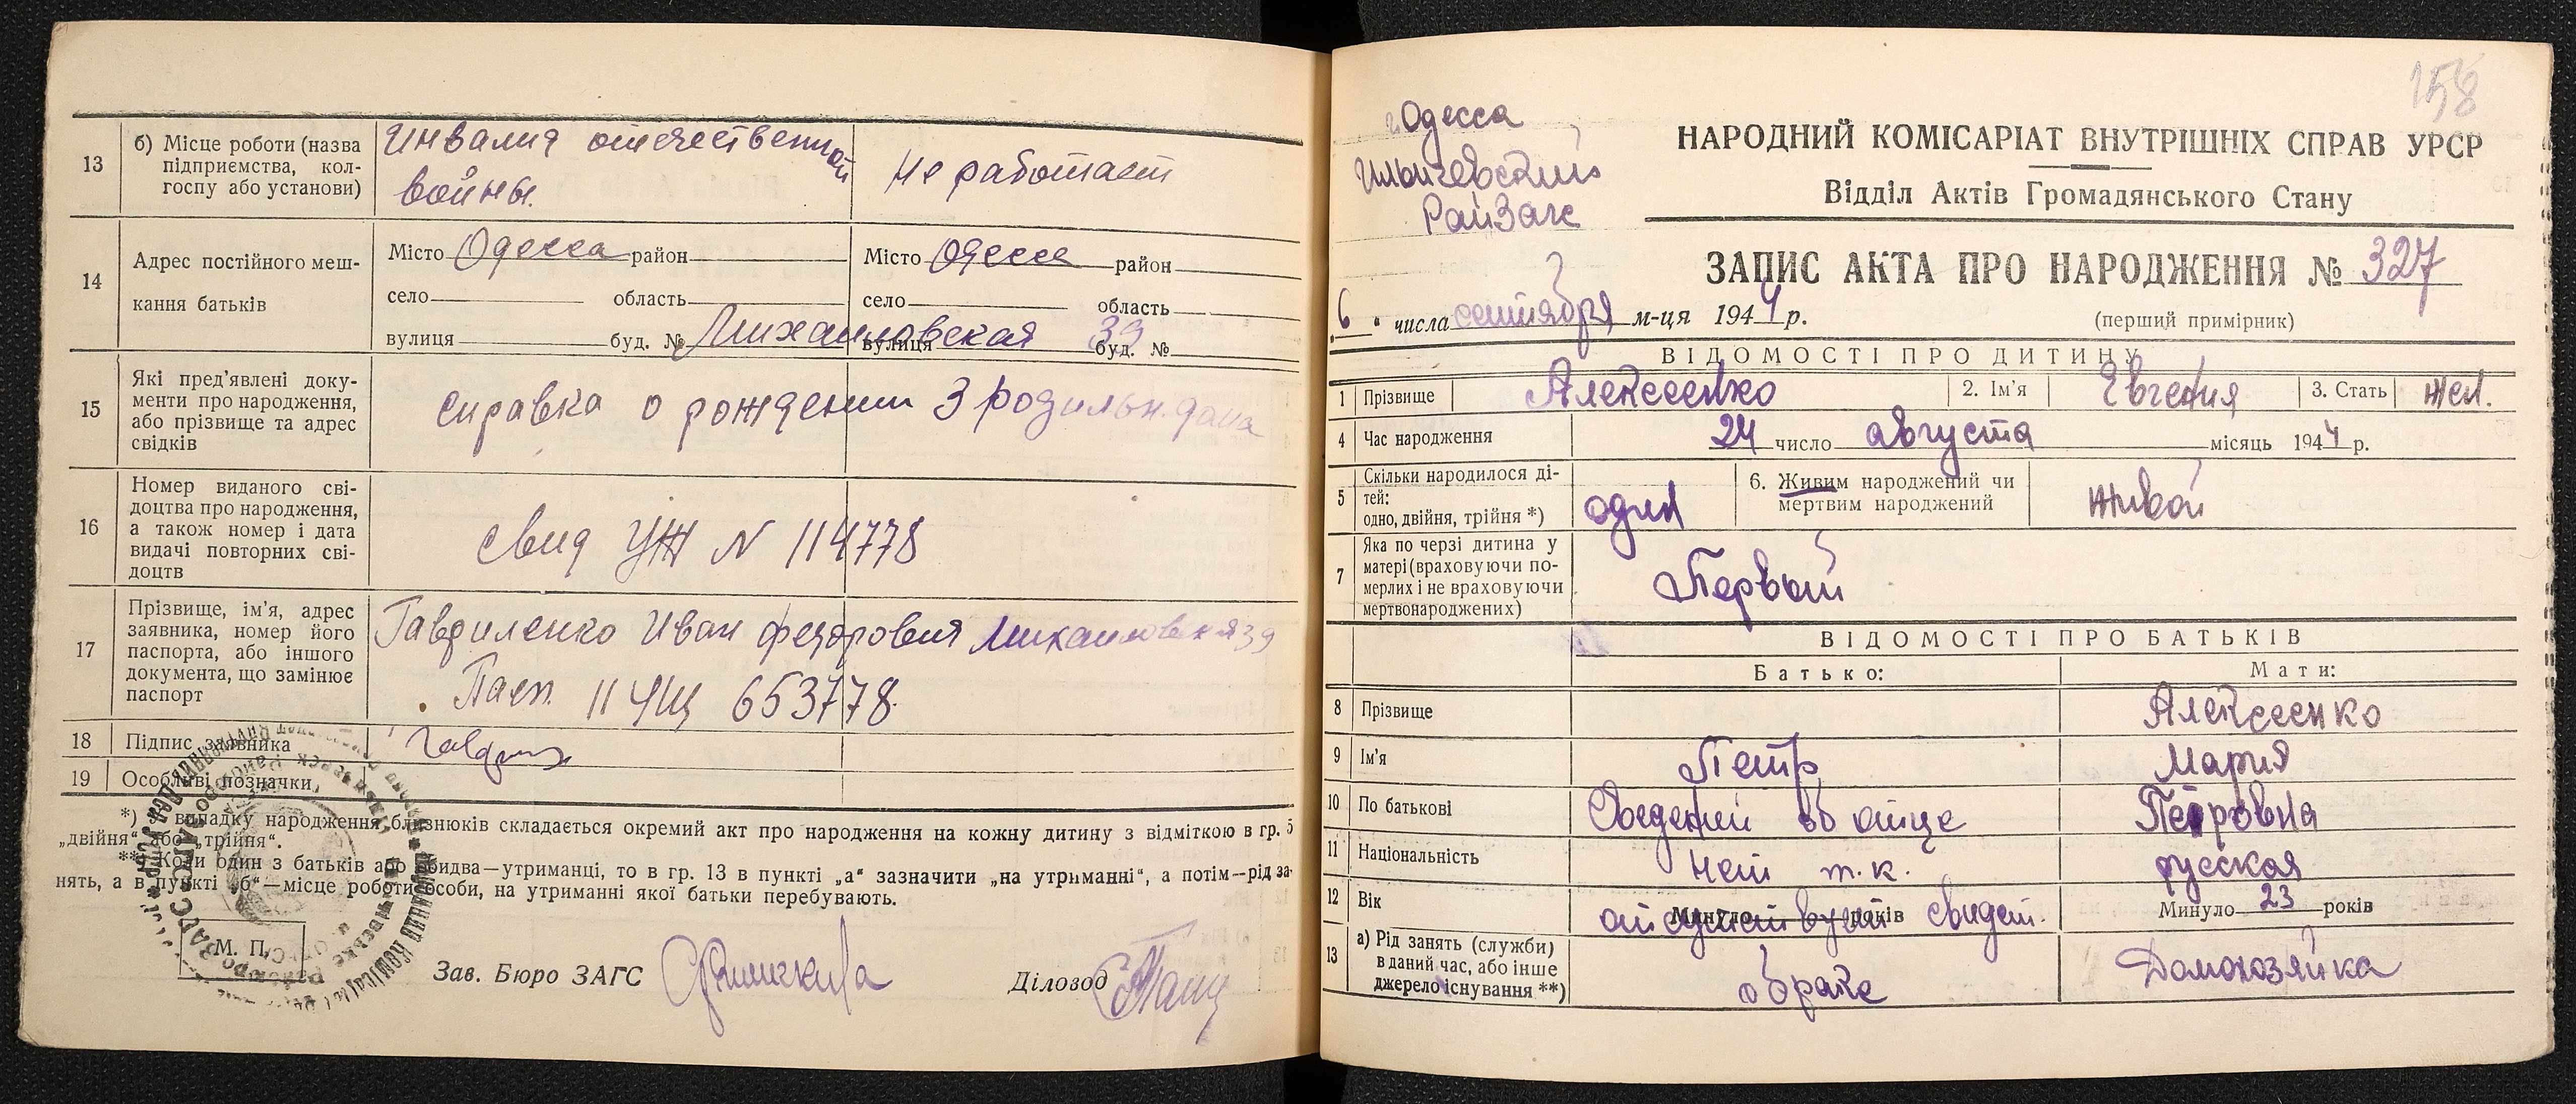 13
б) Місце роботи (назва
підприємства, кол-
госпу або установи)
Инвалид отечественной
войны.
Не работает
14
Адрес постійного меш-
кання батьків
Місто Одесса район
село область
вулиця буд. № Михайловская 39
Місто Одесса район
село область
вулиця буд. №
15
Які пред'явлені доку-
менти про народження,
або прізвище та адрес
свідків
справка о рождении 3 родильн. дома
16
Номер виданого сві-
доцтва про народження,
а також номер і дата
видачі повторних сві-
доцтв
Свид УЖ N 114778
17
Прізвище, ім'я, адрес
заявника, номер його
паспорта, або іншого
документа, що замінює
паспорт
Гавриленко Иван Федорович Михайловская 39
Пасп. II ЧЩ 653778.
18 Підпис заявника
19 Особливі позначки
*) У випадку народження близнюків складається окремий акт про народження на кожну дитину з відміткою в гр. 5
„двійня“ або „трійня“.
**) Коли один з батьків або обидва—утриманці, то в гр. 13 в пункті „а“ зазначити „на утриманні“, а потім—рід за-
нять, а в пункті „б“—місце роботи особи, на утриманні якої батьки перебувають.
М. П.
Зав. Бюро ЗАГС
Діловод
158
г. Одесса
Ильичевский
РайЗагс
НАРОДНИЙ КОМІСАРІАТ ВНУТРІШНІХ СПРАВ УРСР
Відділ Актів Громадянського Стану
ЗАПИС АКТА ПРО НАРОДЖЕННЯ № 327
6 " числа сентября м-ця 1944 р.
(перший примірник)
ВІДОМОСТІ ПРО ДИТИНУ
1 Прізвище Алексеенко 2. Ім'я Евгения 3. Стать жен.
4 Час народження 24 число августа місяць 1944 р.
5
Скільки народилося ді-
тей:
одно, двійня, трійня *)
один
6. Живим народжений чи
мертвим народжений
живой
7
Яка по черзі дитина у
матері (враховуючи по-
мерлих і не враховуючи
мертвонароджених)
Первый
ВІДОМОСТІ ПРО БАТЬКІВ
Батько: Мати:
8 Прізвище Алексеенко
9 Ім'я Петр Мария
10 По батькові Сведений об отце Петровна
11 Національність нет т.к. русская
12 Вік Минуло років отсутствует свидет. Минуло 23 років
13
а) Рід занять (служби)
в даний час, або інше
джерело існування **)
о браке
Домохозяйка